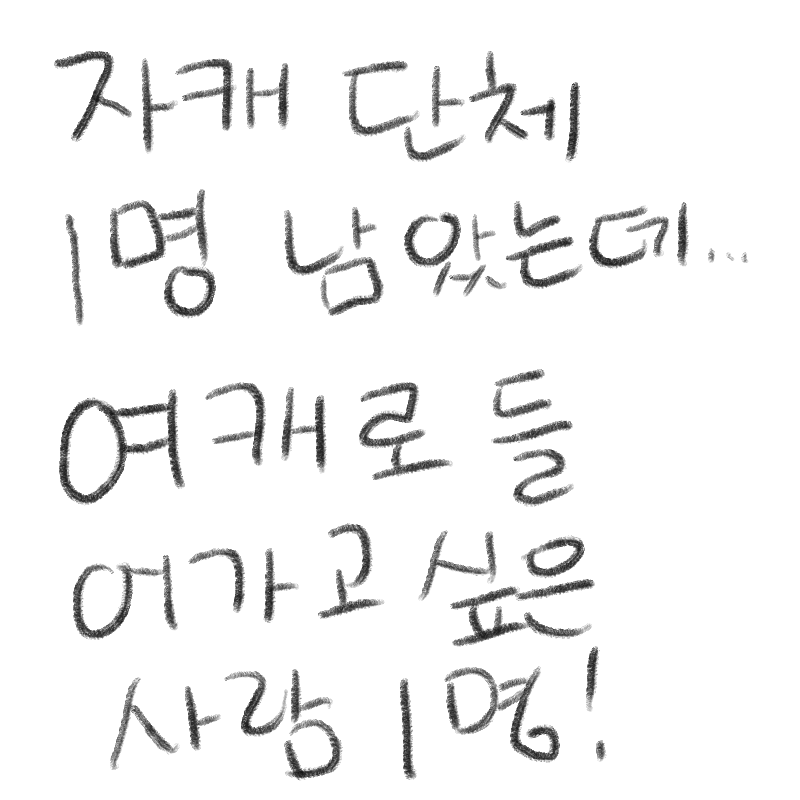 자캐 단체
1명 남았는데...
여캐로 들
어가고 싶은
사람 1명!